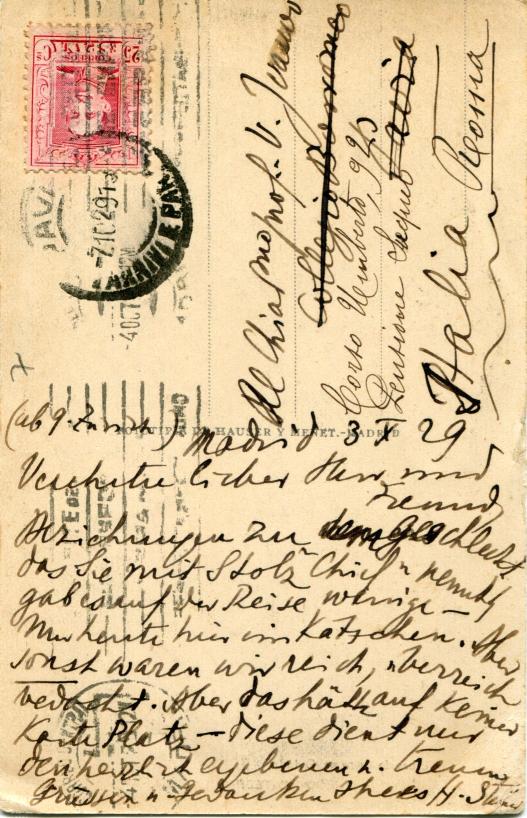 ESPAÑA
CORREOS
25 Cs
7.10.29.13
4 OCT
Al Chiarmo prof. V.
Collegio
Corso Umberto, 940
Pensione
Pavia
Italia Roma
7
(ab 9. Zürich)
HAUSER Y MENET.-MADRID
Madrid 3 X 29
Verehrter lieber Herr und
Freund,
Beziehungen zu
das Sie mit Stolz "Chic" nennt,
gab es auf der Reise wenige —
Nur heute hier im Kätschen. Aber
sonst waren wir reich, überreich
bedacht. Aber das hätt auf keiner
Karte Platz — diese dient nur
den herzlich ergebenen u. treuen
Grüssen u. Gedanken Ihres H.